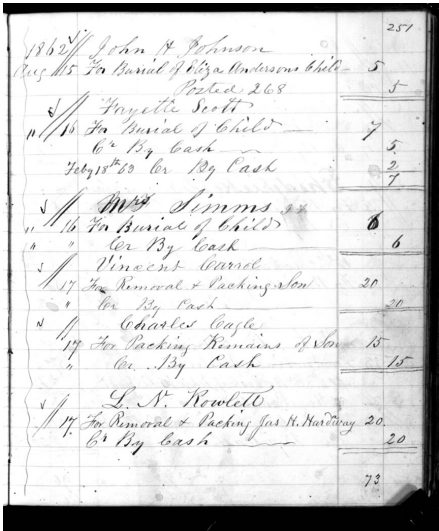 251
1862 John H Johnson
Aug 15 For Burial of Eliza Andersons Child 5
Posted 268 5
Fayette Scott
" 16 For Burial of Child 7
Cr By Cash 5
Feby 18th 63 Cr By Cash 2
7
Mrs Simms
" 16 For Burial of Child 6
" " Cr By Cash 6
Vincent Carrol
17 For Removal & Packing Son 20
" Cr By Cash 20
Charles Cagle
17 For Packing Remains of Son 15
" Cr. By Cash 15
L. N. Rowlett
17. For Removal & Packing Jas H. Hardiway 20.
Cr By Cash 20
73